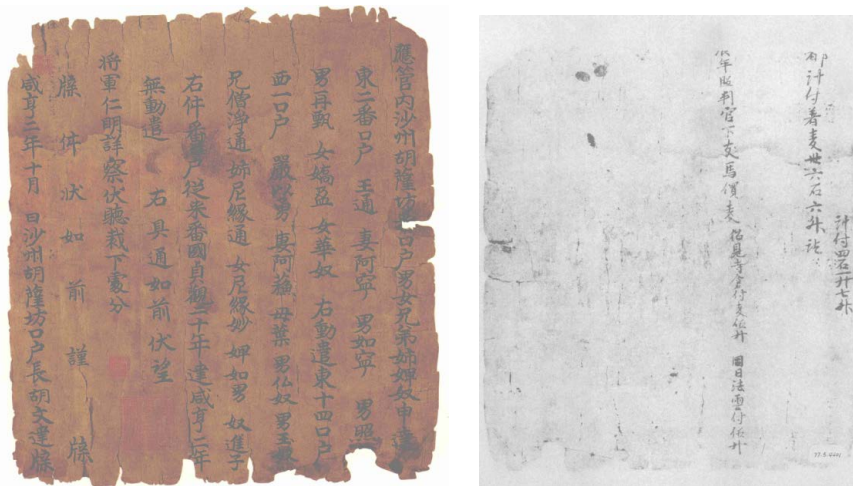 應管内沙州胡薩坊口户男女兄弟姊婢奴申
東二番口户 王通 妻阿寧 男如寧 男照
男再甄 女嬌盈 女華奴 右動遣東十四口户
西一口户 嚴 男 妻阿 母葉 男仏奴 男玉
兄僧淨通 姊尼緣通 女尼緣妙 婢如男 奴進子
右件 户從來番國貞觀二十年達咸亨二年
無動遣 右具通如前伏望
將軍仁明詳察伏聽裁下處分
牒 件 狀 如 前 謹 牒
咸亨二年十月 日沙州胡薩坊口户長胡文達牒
計付四石二升七升
計付著麦卅六石六升訖
年 判官下支馬價麦 寺倉付麦伍升 圓日法雲付伍升